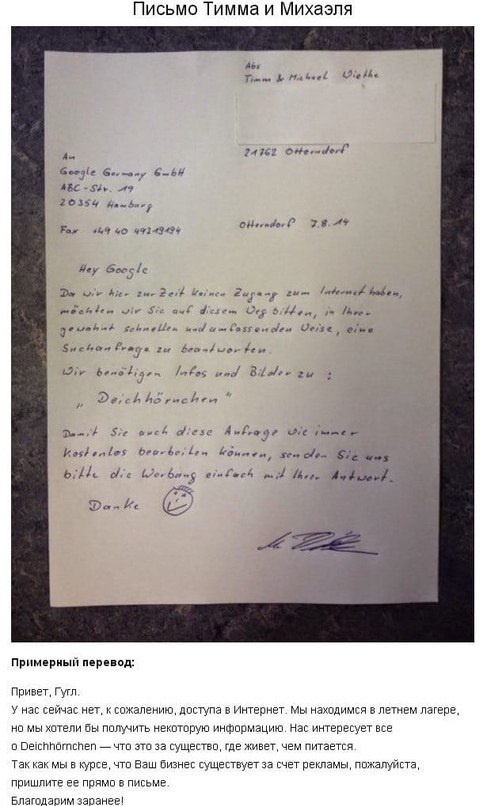 Письмо Тимма и Михаэля
Abs
Timm & Michael Wiethe
21762 Otterndorf
An
Google Germany GmbH
ABC-Str. 19
20354 Hamburg
Fax +49 40 49219194
Otterndorf 7.8.14
Hey Google
Da wir hier zur Zeit keinen Zugang zum Internet haben,
möchten wir Sie auf diesem Weg bitten, in Ihrer
gewohnt schnellen und umfassenden Weise, eine
Suchanfrage zu beantworten.
Wir benötigen Infos und Bilder zu :
„ Deichhörnchen "
Damit Sie auch diese Anfrage wie immer
kostenlos bearbeiten können, senden Sie uns
bitte die Werbung einfach mit Ihrer Antwort.
Danke
Примерный перевод:
Привет, Гугл.
У нас сейчас нет, к сожалению, доступа в Интернет. Мы находимся в летнем лагере,
но мы хотели бы получить некоторую информацию. Нас интересует все
о Deichhörnchen — что это за существо, где живет, чем питается.
Так как мы в курсе, что Ваш бизнес существует за счет рекламы, пожалуйста,
пришлите ее прямо в письме.
Благодарим заранее!